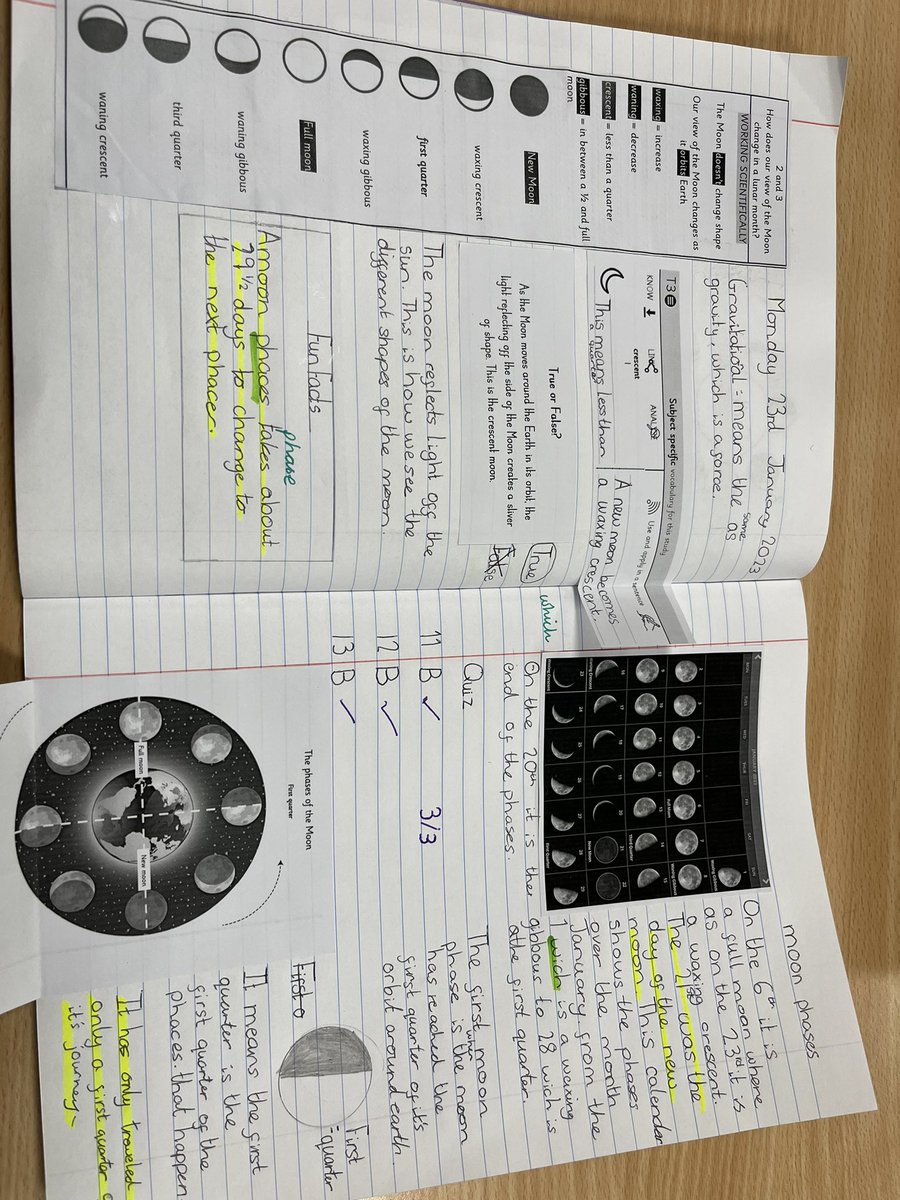 2 and 3
How does our view of the Moon
change in a lunar month?
WORKING SCIENTIFICALLY
The Moon doesn't change shape
Our view of the Moon changes as
it orbits Earth
waxing = increase
waning = decrease
crescent = less than a quarter
gibbous = in between a ½ and full
moon
New Moon
waxing crescent
first quarter
waxing gibbous
Full moon
waning gibbous
third quarter
waning crescent
Monday 23rd January 2023
Gravitational = means the same as
gravity, which is a force.
T3 Subject specific vocabulary for this study
KNOW LINK ANALYSE Use and apply in a sentence
crescent
This means less than
a quarter
A new moon becomes
a waxing crescent.
True or False?
As the Moon moves around the Earth in its orbit, the
light reflecting off the side of the Moon creates a sliver
of shape. This is the crescent moon.
True
False
The moon reflects light off the
sun. This is how we see the
different shapes of the moon.
Fun Facts
phase
A moon phaces takes about
29 ½ days to change to
the next phace.
moon phases
JANUARY 2023
MON TUES WED THUR FRI SAT SUN
1
Waxing Gibbous
2 3 4 5 6 7 8
Full Moon
Waning Gibbous
9 10 11 12 13 14 15
Third Quarter
16 17 18 19 20 21 22
Waning Crescent
New Moon
23 24 25 26 27 28 29
Waxing Crescent
First Quarter
On the 6th it is
a full moon where
as on the 23rd it is
a waxing crescent.
The 21st was the
day of the new
moon. This calender
shows the phases
over the month
January from the
1 wich is a waxing
gibbous to 28 wich is
the first quarter.
which
On the 20th it is the
end of the phases.
Quiz
11 B ✓ 3/3
12 B ✓
13 B ✓
The first moon
phase is when the moon
has reached the
first quarter of it's
orbit around earth.
The phases of the Moon
First quarter
Full moon
New moon
First o
First
= quarter
It means the first
quarter is the
first quarter of the
phaces. that happen
It has only traveled
only a first quarter
it's journey